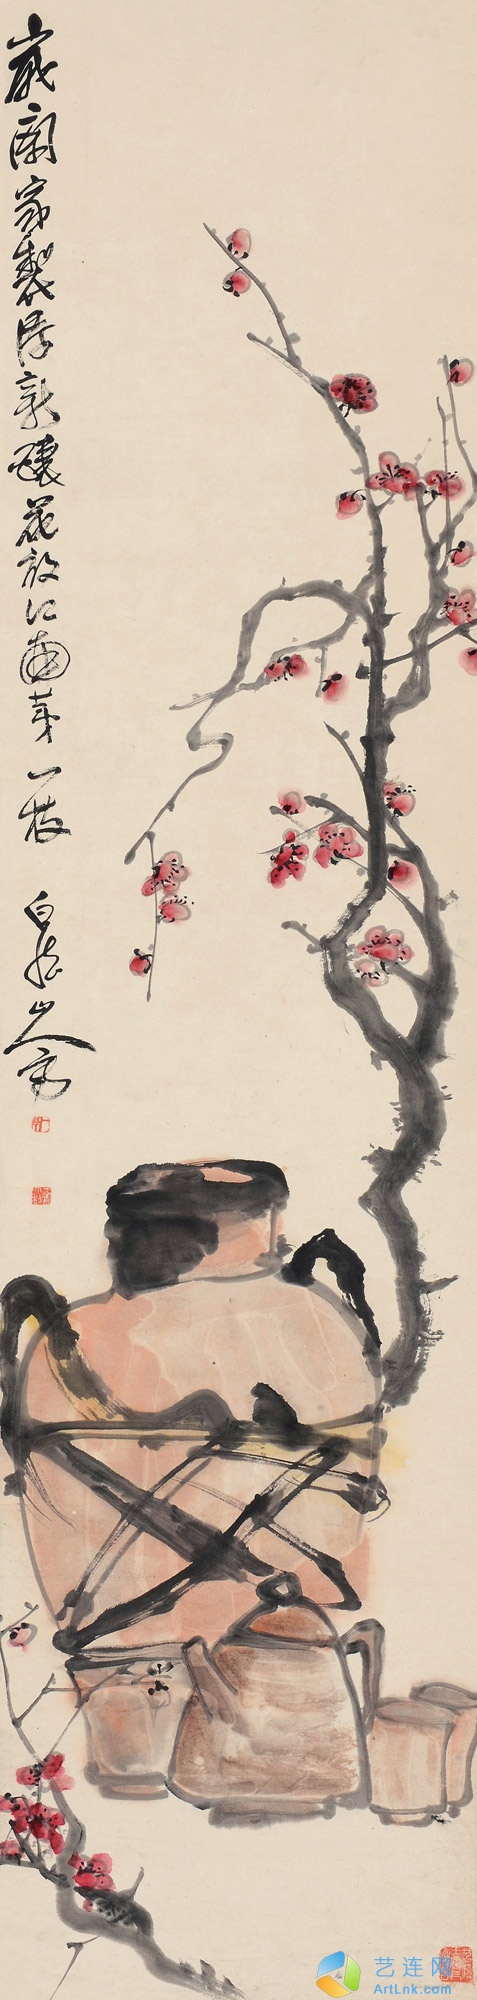 歲闌家製浮新釀花放江南第一枝
白龍山人寫
艺连网
ArtLnk.com